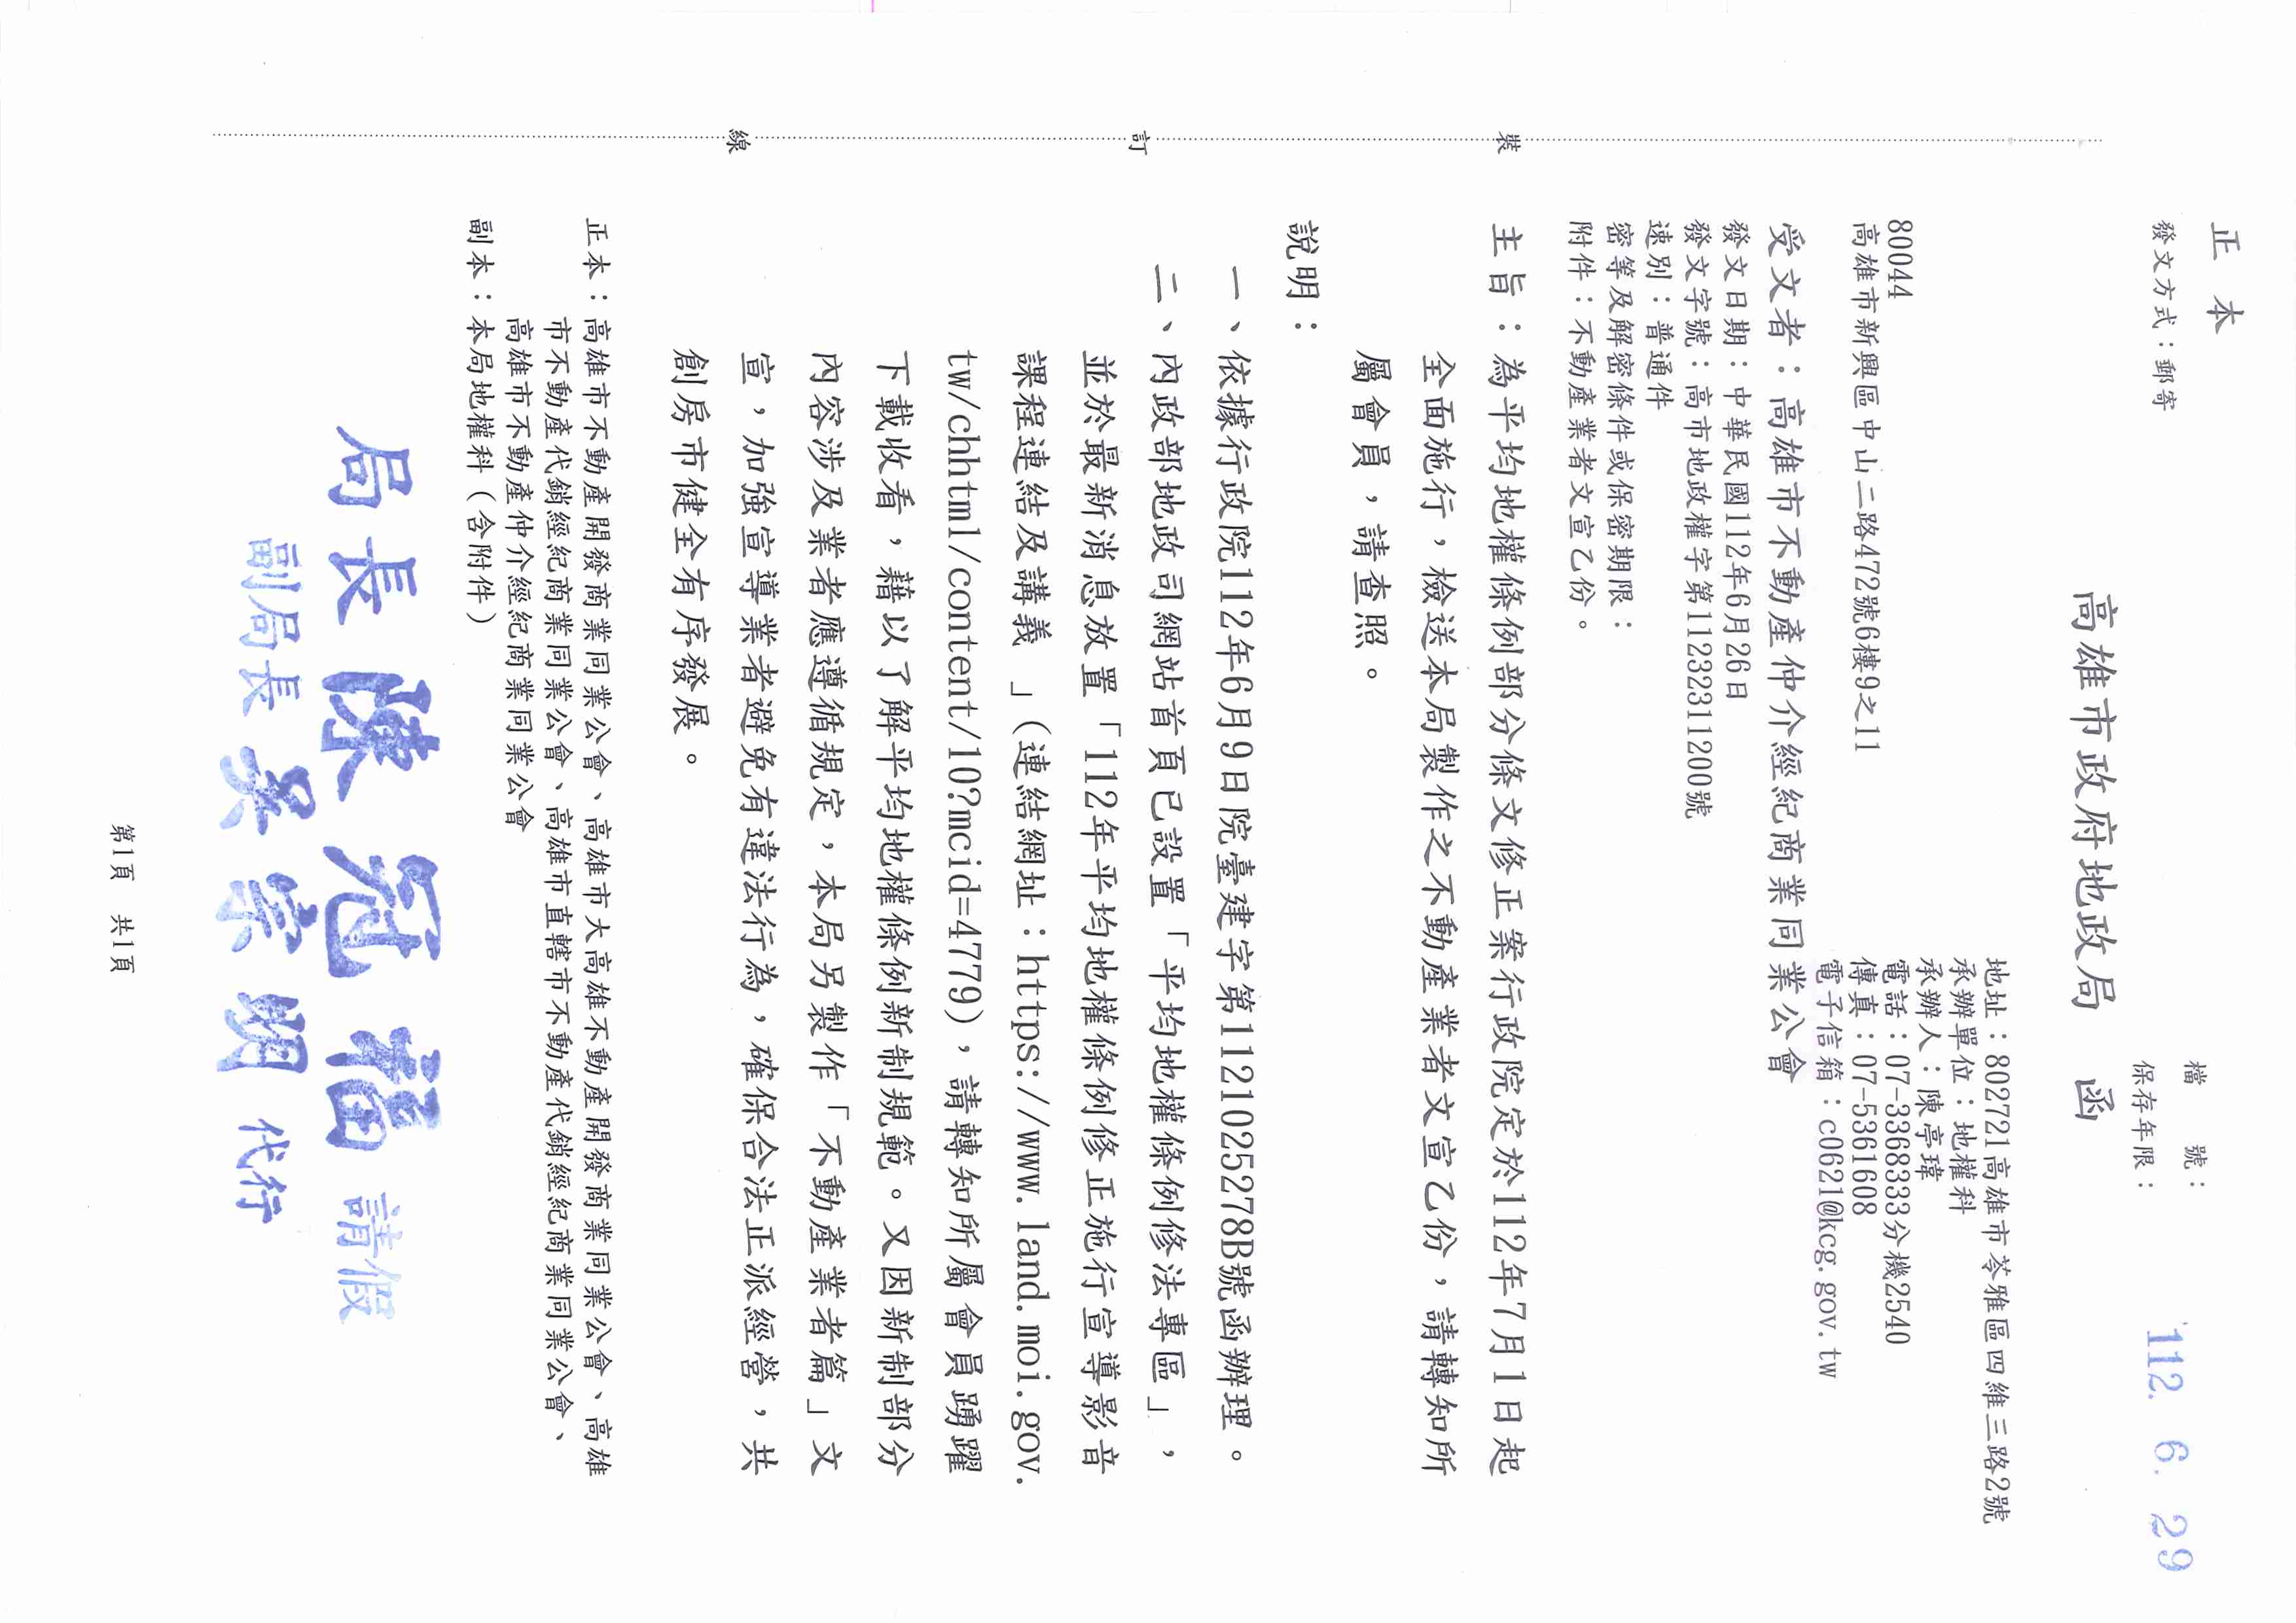 正本
發文方式：郵寄
檔　　號：
保存年限：
112. 6. 29
高雄市政府地政局　函
地址：802721高雄市苓雅區四維三路2號
承辦單位：地權科
承辦人：陳亭瑋
電話：07-3368333分機2540
傳真：07-5361608
電子信箱：c0621@kcg.gov.tw
80044
高雄市新興區中山二路472號6樓9之11
受文者：高雄市不動產仲介經紀商業同業公會
發文日期：中華民國112年6月26日
發文字號：高市地政權字第11232311200號
速別：普通件
密等及解密條件或保密期限：
附件：不動產業者文宣乙份。
主旨：為平均地權條例部分條文修正案行政院定於112年7月1日起
全面施行，檢送本局製作之不動產業者文宣乙份，請轉知所
屬會員，請查照。
說明：
一、依據行政院112年6月9日院臺建字第1121025278B號函辦理。
二、內政部地政司網站首頁已設置「平均地權條例修法專區」，
並於最新消息放置「112年平均地權條例修正施行宣導影音
課程連結及講義 」（連結網址：https://www.land.moi.gov.
tw/chhtml/content/10?mcid=4779），請轉知所屬會員踴躍
下載收看，藉以了解平均地權條例新制規範。又因新制部分
內容涉及業者應遵循規定，本局另製作「不動產業者篇」文
宣，加強宣導業者避免有違法行為，確保合法正派經營，共
創房市健全有序發展。
正本：高雄市不動產開發商業同業公會、高雄市大高雄不動產開發商業同業公會、高雄
市不動產代銷經紀商業同業公會、高雄市直轄市不動產代銷經紀商業同業公會、
高雄市不動產仲介經紀商業同業公會
副本：本局地權科（含附件）
局長 陳冠福 請假
副局長 吳宗明 代行
第1頁　共1頁
裝
訂
線